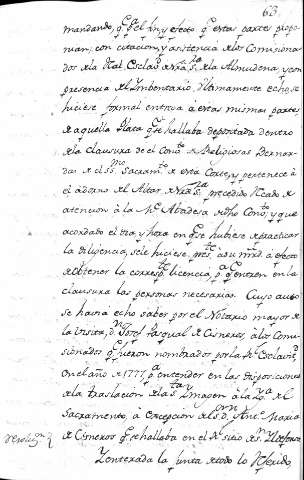 63.
mandando, q.e p.a el fin, y efecto q.e estas partes propo-
nian, con citacion, y asistencia de los Comisiona-
dos de la R.l Esclav.d de Nra S.ra de la Almudena, y con
presencia del Imbentario, ultimamente echo, se
hiciese formal entrega a estas mismas partes
de aquella Plata q.e se hallaba depositada dentro
de la clausura de el Conv.to de Religiosas Bernar-
das de el SS.mo Sacram.to de esta Corte, y pertenece à
el adorno del Altar de Nra S.ra precedido Recado de
atencion à la M.e Abadesa de dho Conv.to, y que
acordado el dia, y hora en q.e se hubiese de practicar
la diligencia, se le hiciese pres.te à su mrd. a efecto
de obtener la corresp.te licencia, p.a q.e entren en la
clausura las personas necesarias. Cuyo auto
se havia echo saber por el Notario mayor de
la visita, d.n Josef Pasqual de Cisneros, à los Comi-
sionados q.e fueron nombrados por la R.l Esclavit.d
en el año de 1777. p.a entender en las disposiciones
de la traslacion de la S.ta Imagen à la Yg.a del
Sacramento, à excepcion de el S.r d.n Ant.o Maria
de Cisneros q.e se hallaba en el R.l sitio de S.n Ildefonso
Resoluz.on
Y enterada la Junta de todo lo Referido,